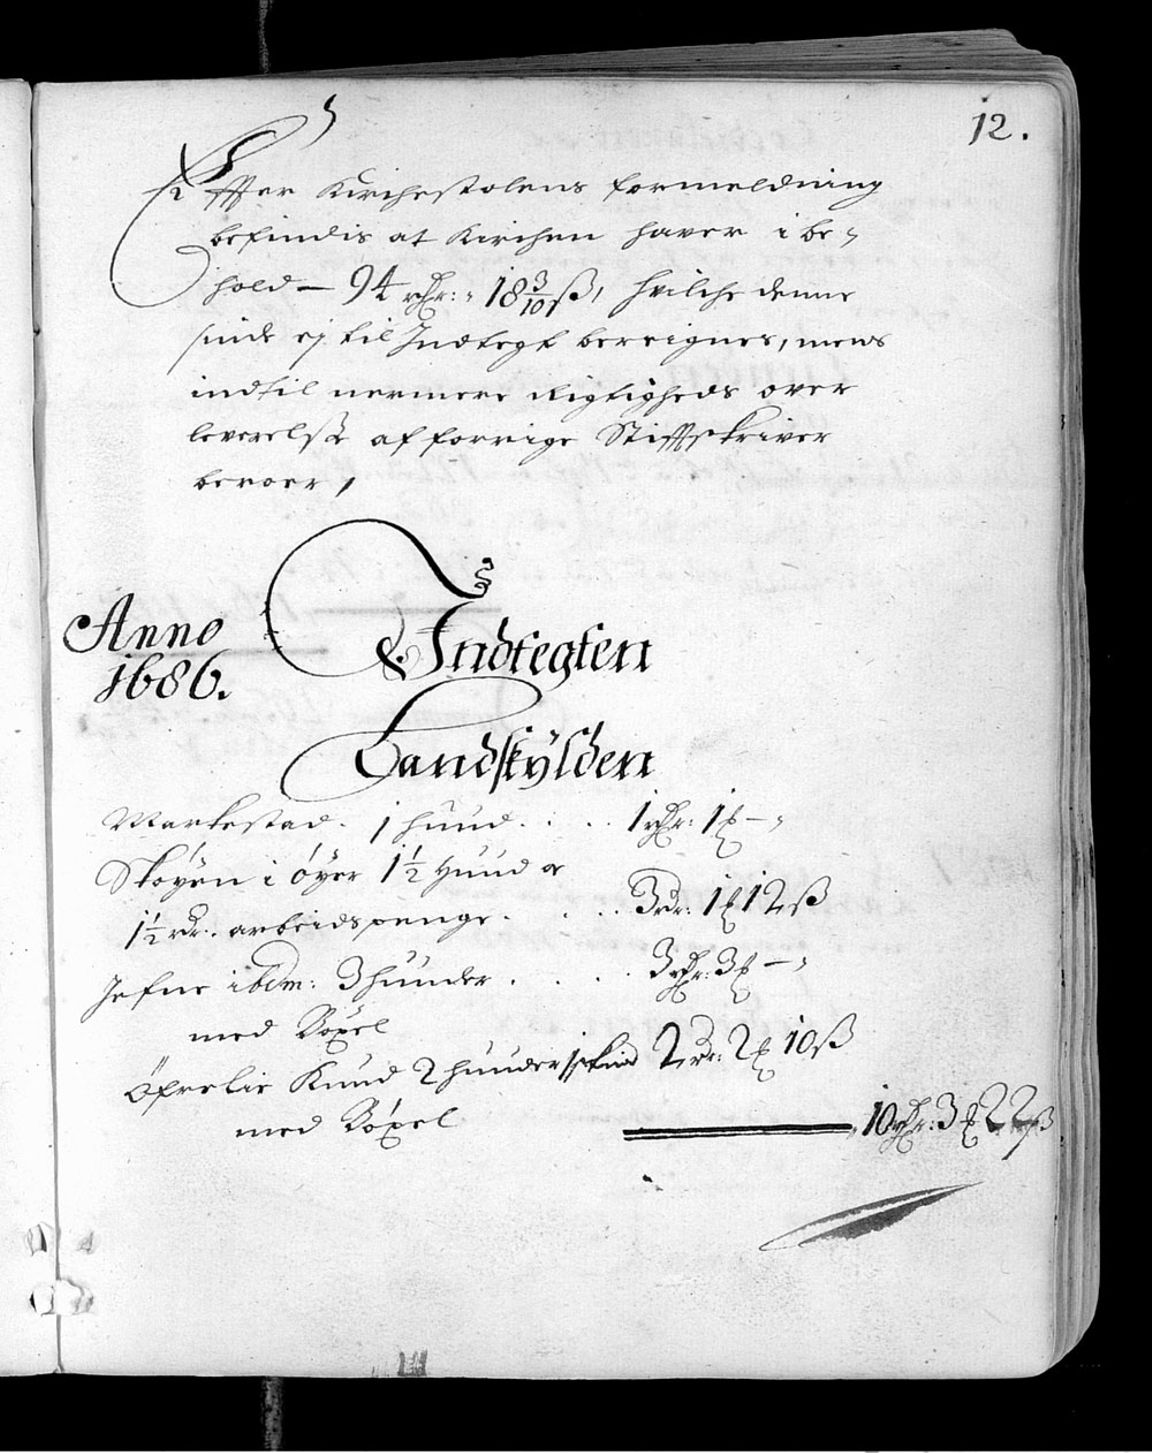 12.
Effter Kirchestolens formeldning
befindis at Kirchen haver i be-
hold — 94 rdr: 18 3/10 ß, hvilche denne
sinde ej til Indtegt bereignes, mens
indtil nermere Rigtigheds over
leverelse af forrige Stifftskriver
beroer,
Anno
1686.
Indtegten
Landskÿlden
Markestad. 1 huud. . . . 1 rdr: 1 ℔ —,
Skoÿen i óÿer 1½ Huud oc
1½ rdr. arbeidspenge. . . . 3 rdr: 1 ℔ 12 ß
Jefne ibdm: 3 huuder . . . 3 rdr: 3 ℔ —,
med Böxel
Öfrelie 2 huuder 2 rdr: 2 ℔ 10 ß
med Böxel
10 rdr: 3 ℔ 22 ß